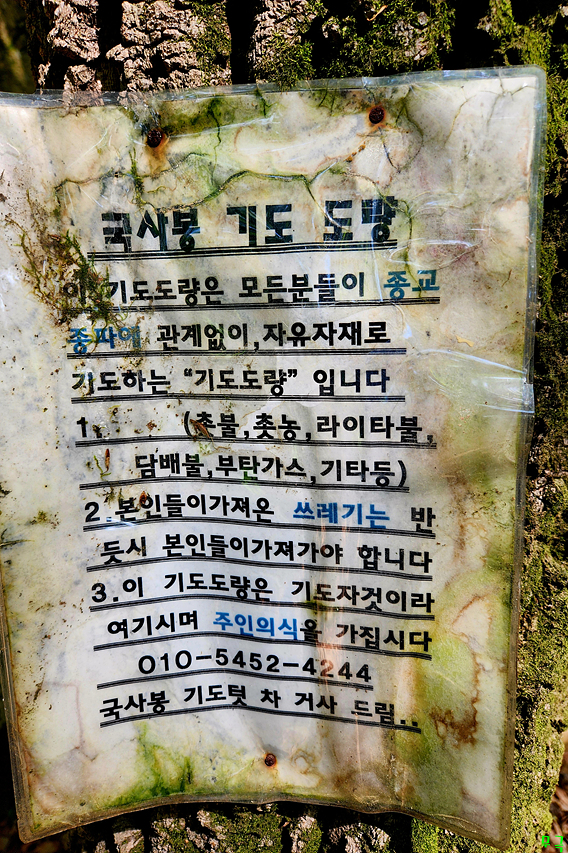 국사봉 기도 도량
이 기도도량은 모든분들이 종교
종파에 관계없이,자유자재로
기도하는 “기도도량” 입니다
1. (촛불,촛농,라이타불,
담배불,부탄가스,기타등)
2.본인들이가져온 쓰레기는 반
듯시 본인들이가져가야 합니다
3.이 기도도량은 기도자것이라
여기시며 주인의식을 가집시다
010-5452-4244
국사봉 기도텃 차 거사 드림..